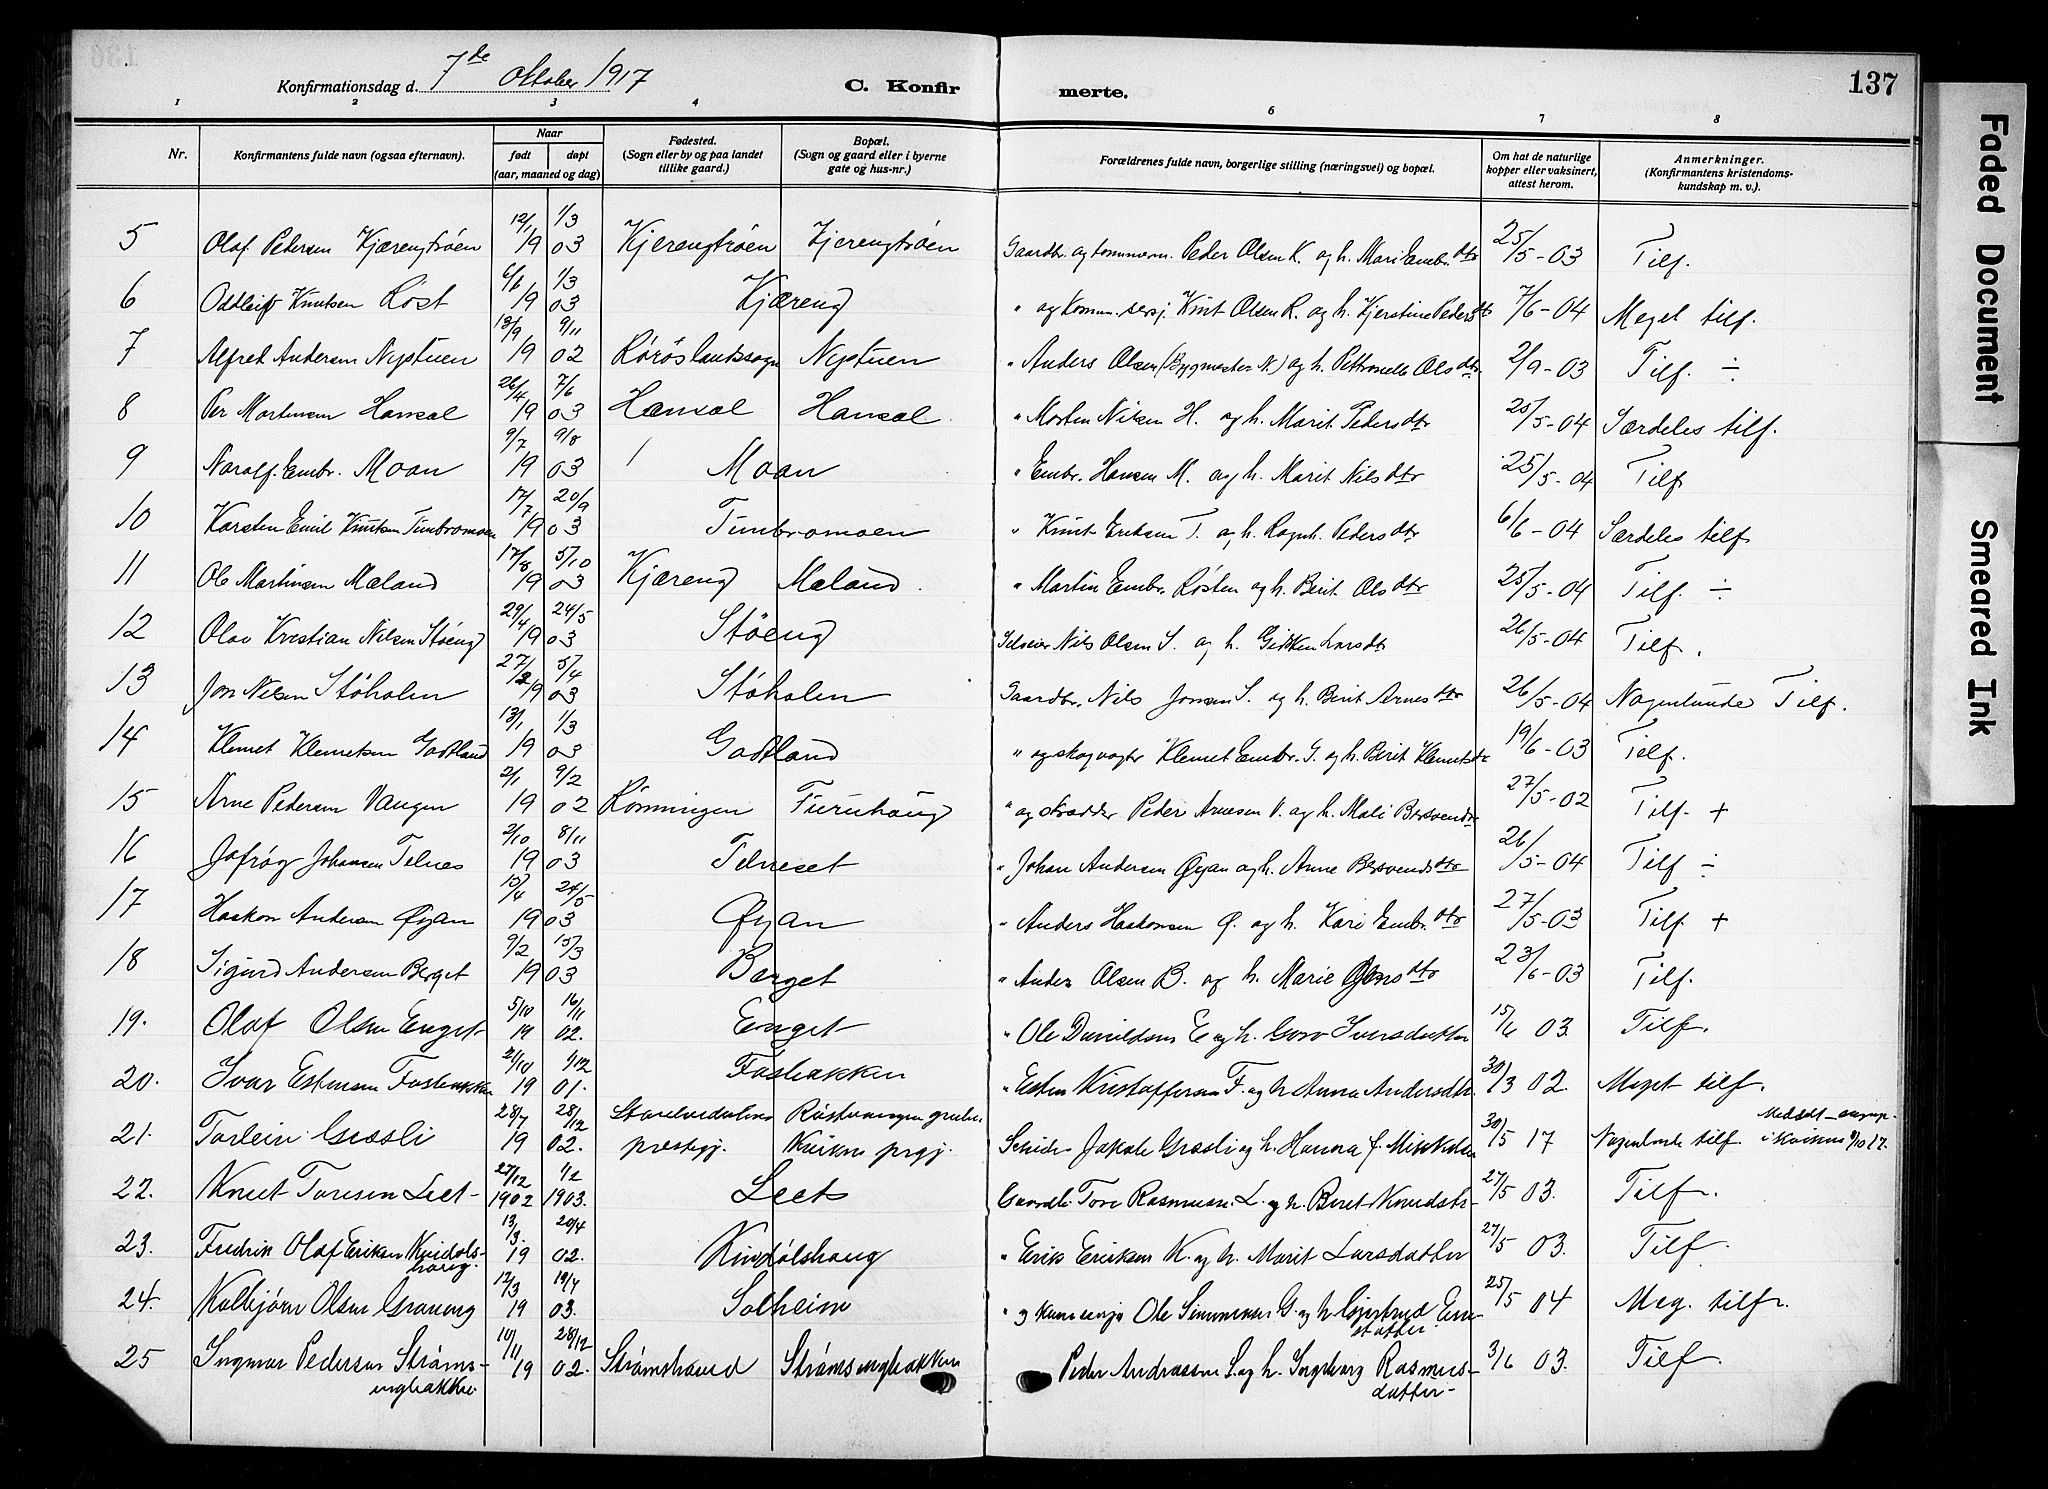 137
Konfirmationsdag d. 7de Oktober 1917 C. Konfirmerte.
1 2 3 4 6 7 8
Nr. Konfirmantens fulde navn (ogsaa efternavn). Naar født døpt (aar, maaned og dag) Fødested. (Sogn eller by og paa landet tillike gaard.) Bopæl. (Sogn og gaard eller i byerne gate og hus-nr.) Forældrenes fulde navn, borgerlige stilling (næringsvei) og bopæl. Om hat de naturlige kopper eller vaksinert, attest herom. Anmerkninger. (Konfirmantens kristendomskundskap m. v.).
5 Olaf Pedersen Kjærengtrøen 12/1 1/3 19 03 Kjerengtrøen Kjerengtrøen Gaardbr. og kommem. Peder Olsen K. og h. Mari Embr.dtr 25/5-03 Tilf.
6 Oddleif Knutsen Röst 6/1 1/3 19 03 Kjæreng " og komm. Knut Olsen R. og h. Kjerstine Pedersdtr 7/6-04 Meget tilf.
7 Alfred Andersen Nyptuen 13/9 9/11 19 02 Rörös landssogn Nyptuen " Anders Olsen (Bygmester N.) og h. Petronelle Olsdtr. 2/9-03 Tilf. ÷
8 Per Mortensen Hansæl 26/4 7/6 19 03 Hansæl Hansæl. " Morten Nilsen H. og h. Marit Pedersdtr 25/5-04 Særdeles tilf.
9 Narolf Embr. Moan 9/7 9/8 19 03 Moan " Embr. Hansen M. og h. Marit Nilsdtr 25/5-04 Tilf
10 Karsten Emil Knutsen Tumbromoen 17/7 20/9 19 03 Tumbromoen " Knut Eriksen T. og h. Ragnh. Pedersdtr 6/6-04 Særdeles tilf
11 Ole Martinsen Mæland 17/8 5/10 19 03 Kjæreng Mæland. " Martin Embr. Røsten og h. Berit Olsdtr 25/5-04 Tilf. ÷
12 Olav Kristian Nilsen Støeng 29/4 24/5 19 03 Støeng Nils Olsen S. og h. Gikken Larsdtr 26/5-04 Tilf.
13 Jon Nilsen Støholen 27/2 5/4 19 03 Støholen Gaardbr. Nils Jonsen S. og h. Berit Arnesdtr 26/5-04 Nogenlunde Tilf.
14 Klemet Klemetsen Godtland 13/1 1/3 19 03 Godtland " og skogvogter Klemet Embr. G. og h. Berit Klemetsdtr 19/6-03 Tilf.
15 Arne Pedersen Vangen 2/1 9/2 19 02 Rönningen Furuhaug " og skrædder Peder Arnesen V. og h. Mali Bersvendsdtr 27/5-02 Tilf. +
16 Johansen Telnes 2/10 8/11 19 03 Telneset " Johan Andersen Øyan og h. Anne Bersvendsdtr 26/5-04 Tilf ÷
17 Haakon Andersen Øyan 15/4 24/5 19 03 Øyan " Anders Haakonsen Ø. og h. Kari Embr.dtr 27/5-03 Tilf. +
18 Sigurd Andersen Berget 9/2 15/3 19 03 Berget " Anders Olsen B. og h. Marie dtr 23/6-03 Tilf.
19. Olaf Olsen Enget 5/10 16/11 19 02. Enget " Ole Danieldsen E og h. Goro Iversdatter 15/6 03. Tilf.
20. Ivar Estensen Fosbakken 21/10 1/12 19 01. Fosbakken " Esten Kristoffersen F. og h Anna Andersdtr. 30/3 02. Meget tilf.
21. Torleiv Græsli 28/7 28/12 19 02. Storelvedalens prestegj. Røstvangen grube Kvikne prgj. Jakob Græsli og h. Hanna f. Mikkelsen 30/5 17 Nogenlunde tilf. i Kvikne 9/10 17.
22. Knut Toresen Leet 27/12 1/2 1902 1903. Leet Gaardb. Tore Rasmussen L. og h. Beret Knudsdtr 27/5 03. Tilf.
23. Fredrik Olaf Eriksen Kvidalshaug 13/3. 20/4 19 02. Kvidalshaug " Erik Eriksen K. og h. Marit Larsdatter 27/5 03. Tilf.
24. Kolbjörn Olsen Graneng 12/3 19/4 19 03. Solheim " og Ole Simonsen G. og h Gjertrud Estatter 25/5 04 Meg. tilf.
25 Ingmar Pedersen Strømsengbakken 10/11 28/12 19 02. Strømstrand Strømsengbakken Peder Andreassen S. og h. Ingeborg Rasmusdatter 3/6 03. Tilf.
Faded Document
Smeared Ink